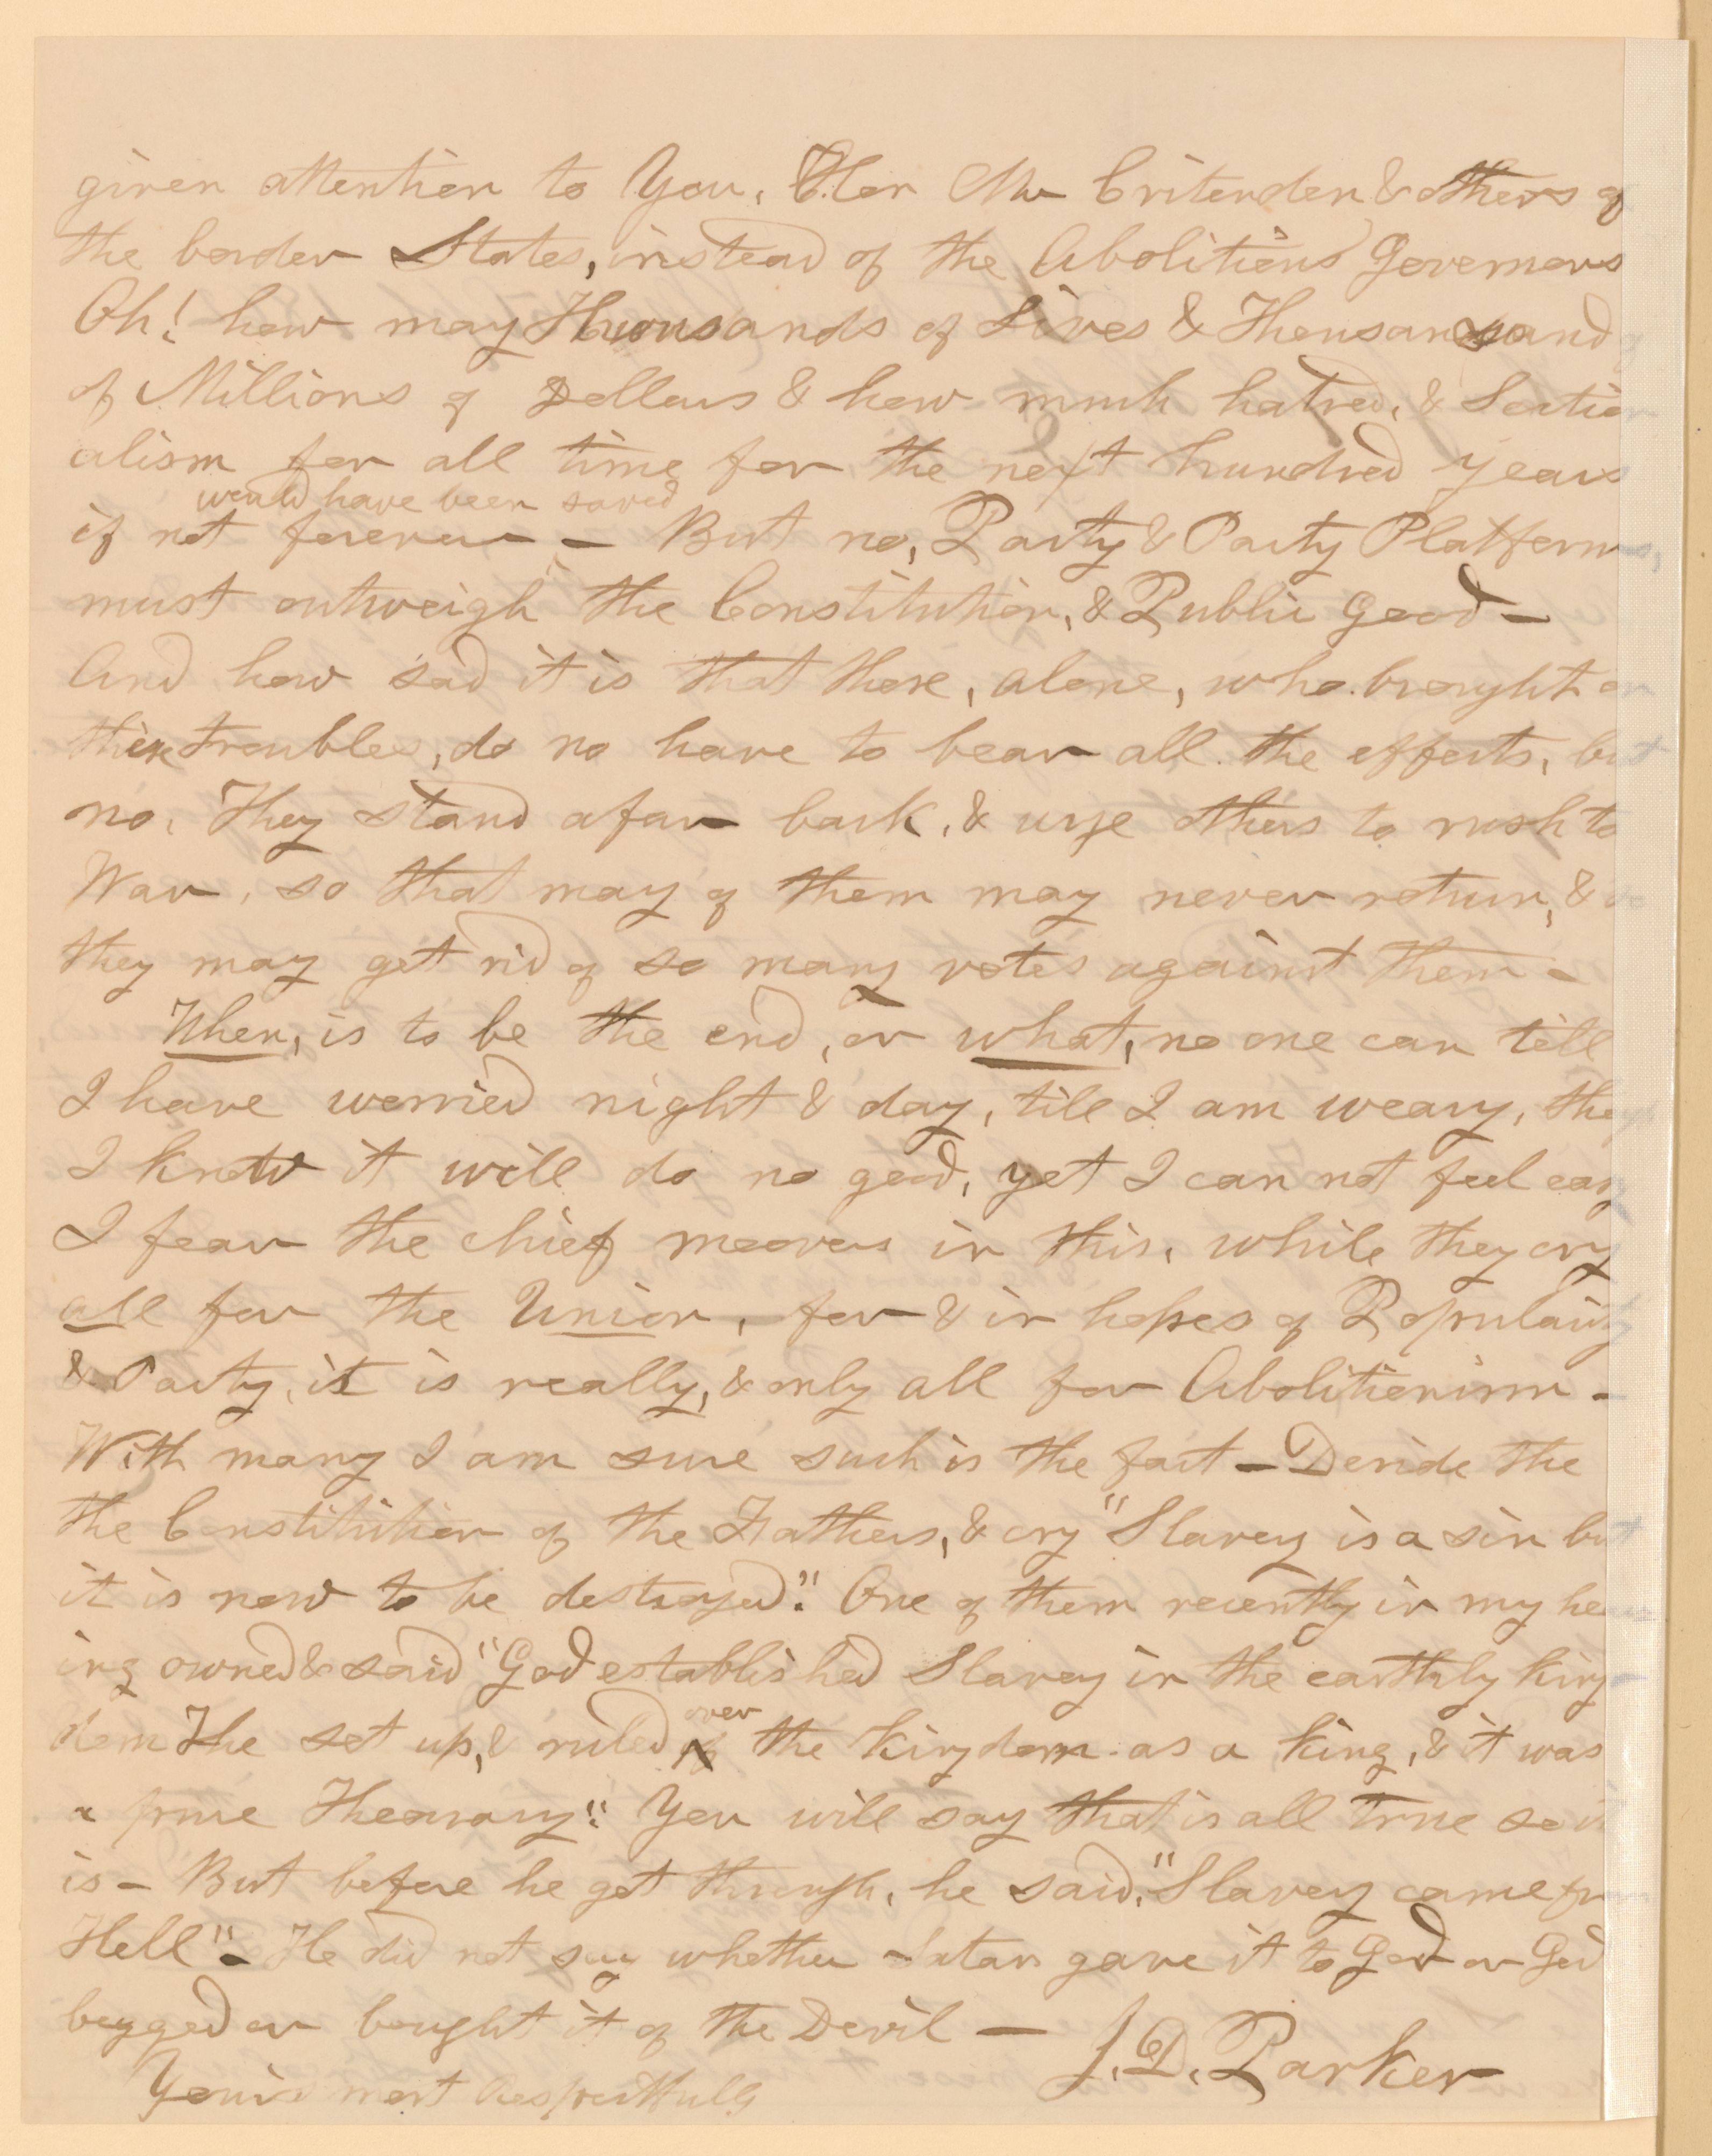 given attention to You, Hon Mr Critenden & others of
the border States, instead of the Abolitions Governors
Oh! how may Thousands of Lives & Thousands and
of Millions of Dollars & how much hatred, & Section
alism for all time for the next hundred years
would have been saved
if not forever — But no, Party & Party Platforms,
must outweigh the Constitution, & Public Good —
And how sad it is that these, alone, who brought on
these troubles, do no have to bear all the effects, but
no. They stand afar back, & urge others to rush to
War, so that may of them may never return, & so
they may get rid of so many votes against them —
When, is to be the end, or what, no one can tell
I have worried night & day, till I am weary, tho
I know it will do no good, yet I can not feel easy
I fear the chief moovers in this, while they cry
all for the Union, for & in hopes of Popularity
& Party, it is really, & only all for Abolitionism —
With many I am sure such is the fact — Deride the
the Constitution of the Fathers, & cry "Slavery is a sin but
it is now to be destroyed". One of them recently in my hear
ing owned & said "God established Slavery in the earthly king-
dom He set up, & ruled over the kingdom as a king, & it was
a pure Theocracy". You will say that is all true so it
is — But before he got through, he said, "Slavery came from
Hell" — He did not say whether Satan gave it to God or God
begged or bought it of the Devil —
J. D. Parker
Yours most Respectfully